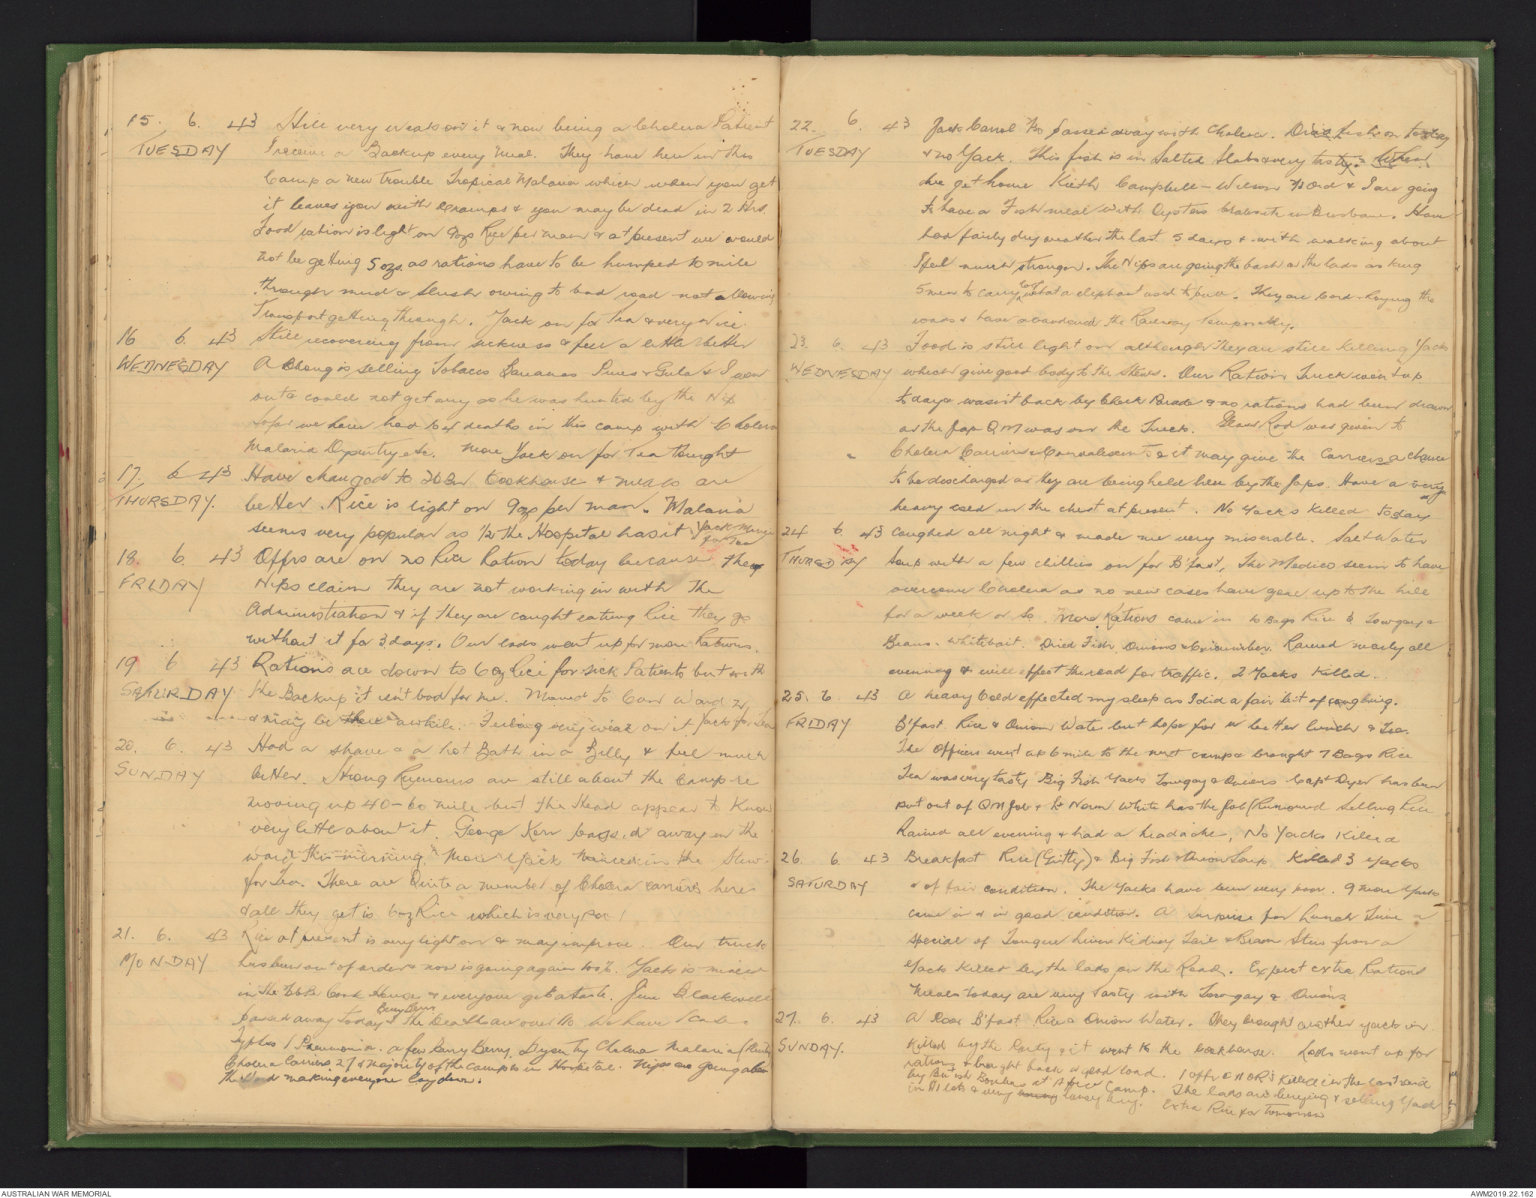 15. 6. 43 Still very weak on it & now being a Cholera Patient
TUESDAY I receive a Backup every meal. They have here in this
Camp a new trouble Tropical Malaria which when you get
it leaves you with cramps & you may be dead in 2 Hrs.
Food ration is light on 9ozs Rice per man & at present we would
not be getting 5 ozs. as rations have to be humped 10 mile
through mud & slush owing to bad road not allowing
Transport getting through. Jack on for Tea & very nice.
16 6. 43 Still recovering from sickness & feel a little better
WEDNESDAY A Chong is selling Tobacco Bananas Pines & Gula & I went
out & could not get any as he was hunted by the Nip
So far we have had deaths in this camp with Cholera
Malaria Dysentry etc. More Yack on for Tea tonight
17. 6 43 Have changed to 26Bn Cookhouse & meals are
THURSDAY. better. Rice is light on 9ozs per man. Malaria
seems very popular as 1/2 the Hospital has it Yack Mince
for Tea
18. 6. 43 Offrs are on no Rice Ration today because the
FRIDAY Nips claim they are not working in with the
Administration & if they are caught eating Rice they go
without it for 3 days. Our lads went up for more Rations.
19 6 43 Rations are down to 6oz Rice for sick Patients but with
SATURDAY the Backup it isn't bad for me. Moved to Conv Ward
& may be there awhile. Feeling very weak on it Yack for Tea
20. 6. 43 Had a shave & a hot Bath in a Billy & feel much
SUNDAY better. Strong Rumours are still about the Camp re
moving up 40-60 mile but the Head appear to know
very little about it. George Kerr passed away in the
ward this morning. More Yack minced in the Stew
for Tea. There are Quite a number of Cholera carriers here
& all they get is 6oz Rice which is very poor!
21. 6. 43 Rice at present is very light on & may improve. Our truck
MONDAY has been out of order & now is going again 100%. Yack is minced
in the Cook House & everyone gets a taste. Jim Blackwell
passed away today Bery Berry & the Deaths are over We have 1 case
Typhus 1 Pneumonia. a few Berry Berry, Dysentry Cholera Malaria
Cholera Carriers 27 & majority of the camp is in Hospital. Nips are going about
the Road making everyone lay down.
22. 6. 43 Jack Carrol has passed away with Cholera. Dried fish on today
TUESDAY & no Yack. This fish is in Salted Slabs & very tasty. When
we get home Kieth Campbell - Wilson & I are going
to have a Fish meal with Oysters Crabs etc in Brisbane. Have
had fairly dry weather the last 5 days & with walking about
I feel much stronger. The Nips are going the bash on the lads asking
5 men to carry what a elephant used to pull. They are Corduroying the
roads & have abandoned the Railway Temporarily.
23. 6. 43 Food is still light on although they are still killing Yacks
WEDNESDAY which give good body to the Stews. Our Ration Truck went up
today & wasn't back by Check Parade & no rations had been drawn
as the Jap Q.M was on the Truck. Glass Rod was given to
Cholera Carriers & Convalescents & it may give the Carriers a chance
to be discharged as they are being held here by the Japs. Have a very
heavy cold in the chest at present. No Yacks killed today
24 6 43 Coughed all night & made me very miserable. Salt Water
THURSDAY Soup with a few chillies on for B'fast. The Medico seem to have
overcome Cholera as no new cases have gone up to the hill
for a week or so. More Rations came in 10 Bags Rice & Towgay &
Beans. Whitebait. Dried Fish, Onions & Cucumber. Rained nearly all
evening & will effect the road for traffic. 2 Yacks Killed.
25. 6 43 A heavy Cold effected my sleep as I did a fair bit of coughing.
FRIDAY B'fast Rice & Onion Water but hope for a better lunch & Tea.
The Officers went up 6 mile to the next camp & brought 7 Bags Rice
Tea was very tasty Big Fish Yacks Towgay & Onions Capt Dyer has been
put out of QM Job & Lt Norm White has the job (Rumoured Selling Rice
Rained all evening & had a headache. No Yacks Killed
26. 6. 43 Breakfast Rice (Gritty) & Big Fish & Onion Soup. Killed 3 Yacks
SATURDAY & of fair condition. The Yacks have been very poor. 9 more Yacks
came in & in good condition. A surprise for Lunch Time a
special of Tongue Liver Kidney Tail & Brain Stew from a
Yack Killed by the lads on the Road. Expect extra Rations
Meals today are very tasty with Towgay & Onions
27. 6. 43 A Poor B'fast Rice & Onion Water. They brought another yack in
SUNDAY. Killed by the Party & it went to the cookhouse. Lads went up for
rations & brought back a good load. 1 offr OR's Killed in the last raid
by British Bombers at Camp. The lads are buying & selling Yack
in lots & very hungry. Extra Rice for tomorrow
AUSTRALIAN WAR MEMORIAL
AWM2019.22.162